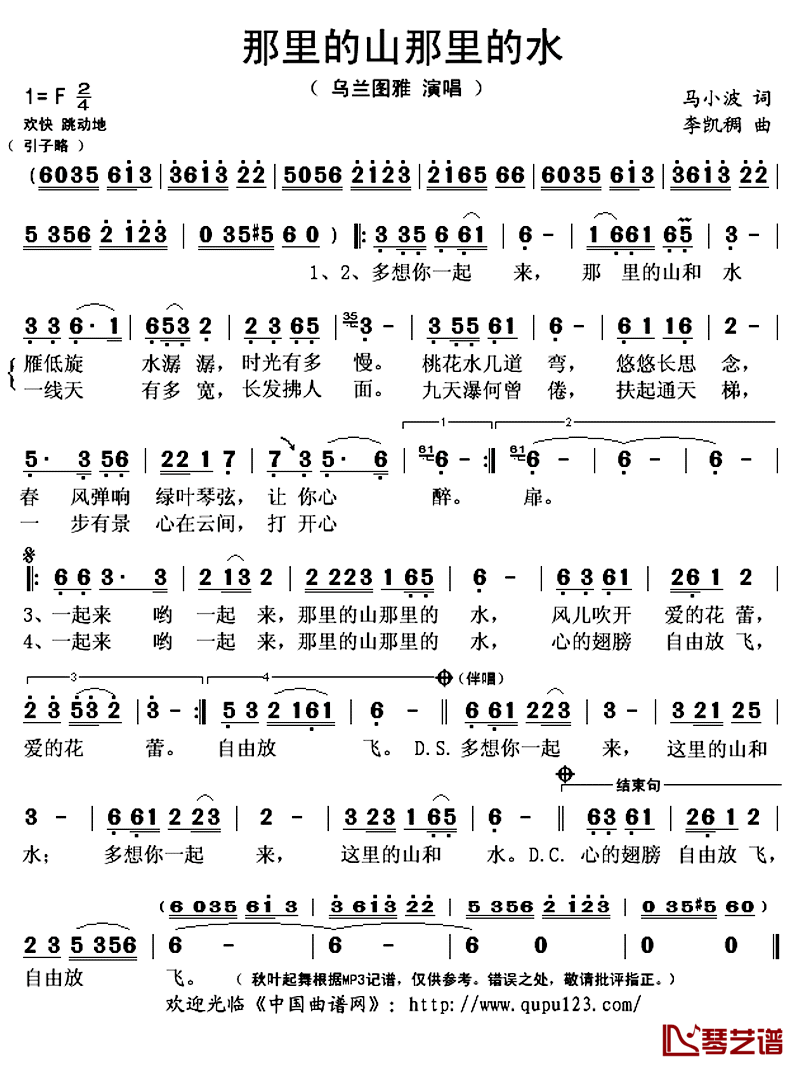 那里的山那里的水
（ 乌兰图雅 演唱 ）
1= F 2/4
马小波 词
欢快 跳动地
李凯稠 曲
（ 引子略 ）
( 6035 613 | 3613 22 | 5056 2123 | 2165 66 | 6035 613 | 3613 22 |
5 356 2 123 | 0 35#5 6 0 ) ‖: 3 35 6 61 | 6 - | 1 661 65 | 3 - |
1、2、多想你一起 来， 那 里的山和 水
3 3 6· 1 | 653 2 | 2 3 65 | 35 3 - | 3 55 61 | 6 - | 61 16 | 2 - |
雁低旋 水潺 潺，时光有多 慢。 桃花水几道 弯， 悠悠长思 念，
一线天 有多 宽，长发拂人 面。 九天瀑何曾 倦， 扶起通天 梯，
1 2
5· 3 56 | 22 1 7 | 7 3 5· 6 | 61 6 - :‖ 61 6 - | 6 - | 6 - |
春 风弹响 绿叶琴弦，让 你心 醉。 扉。
一 步有景 心在云间，打 开心
‖: 6 6 3· 3 | 2 13 2 | 2 223 1 65 | 6 - | 6 3 61 | 26 1 2 |
3、一起来 哟 一起 来，那里的山那里的 水， 风儿吹开 爱的花 蕾，
4、一起来 哟 一起 来，那里的山那里的 水， 心的翅膀 自由放 飞，
3 4 （伴唱）
2 3 53 2 | 3 - :‖ 5 3 2 161 | 6 - ‖ 6 61 223 | 3 - | 3 21 25 |
爱的花 蕾。 自由放 飞。D.S.多想你一起 来， 这里的山和
结束句
3 - | 6 61 2 23 | 2 - | 3 23 1 65 | 6 - ‖ 63 61 | 26 1 2 |
水； 多想你一起 来， 这里的山和 水。D.C. 心的翅膀 自由放 飞，
( 6 035 61 3 | 3 613 22 | 5 356 2 123 | 0 35#5 60 )
2 3 5 356 | 6 - | 6 - | 6 0 | 0 0 ‖
自由放 飞。 （ 秋叶起舞根据MP3记谱，仅供参考。错误之处，敬请批评指正。）
欢迎光临《中国曲谱网》：http://www.qupu123.com/
琴艺谱